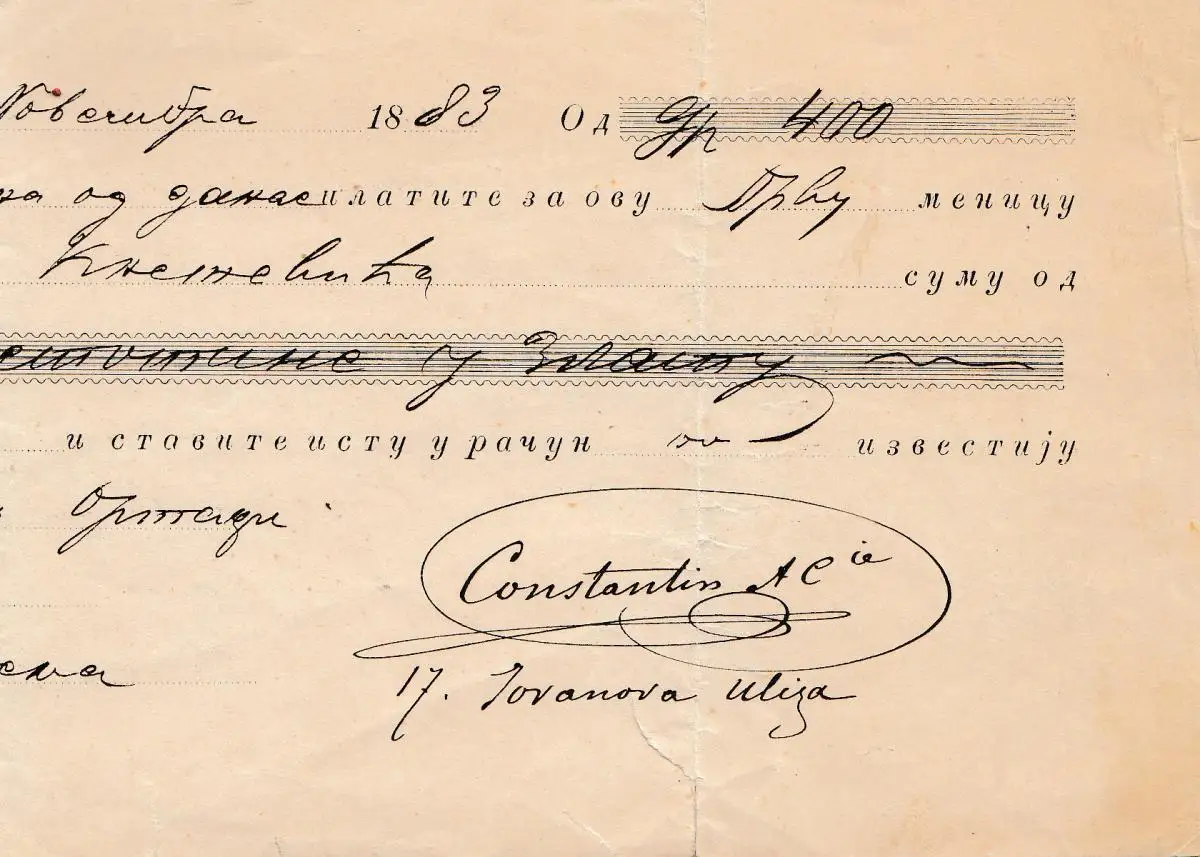 Новембра 1883 Од др 400
од данас платите за ову Прву меницу
Кнежевића суму од
стотине у Злату
и ставите исту у рачун известију
Constantin & Cie
17. Jovanova Uliza